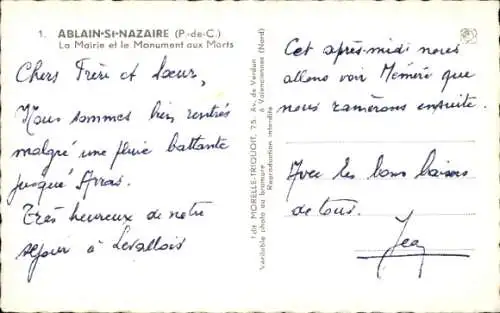 1. ABLAIN-St-NAZAIRE (P.-de-C.)
La Mairie et le Monument aux Morts
Chers Frère et Sœur,
Nous sommes bien rentrés
malgré une pluie battante
jusqu'à Arras.
Très heureux de notre
séjour à Levallois
Edit. MORELLE-TRIQUOIT, 75, Av. de Verdun
à Valenciennes (Nord)
Véritable photo au bromure
Reproduction interdite
Cet après-midi nous
allons voir Mémère que
nous ramèrons ensuite.
Avec les bons baisers
de tous.
Jean